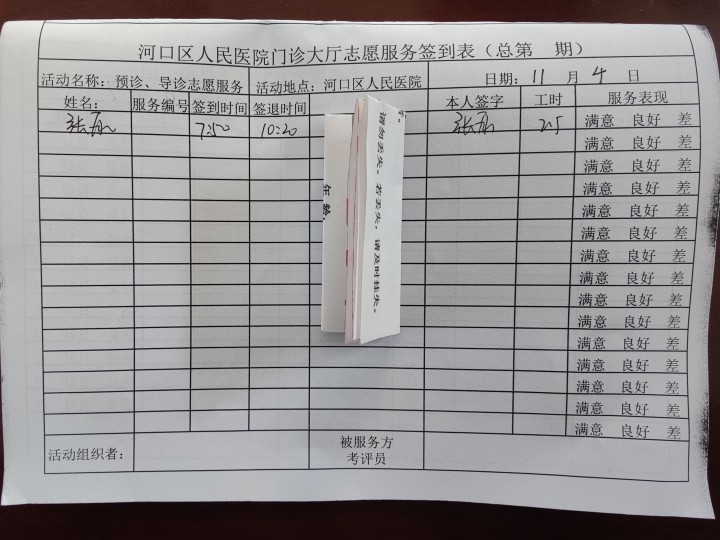 河口区人民医院门诊大厅志愿服务签到表（总第 期）
活动名称：预诊、导诊志愿服务 活动地点：河口区人民医院 日期：11 月 4 日
姓名： 服务编号 签到时间 签退时间 本人签字 工时 服务表现
张 7:50 10:20 张 2.5 满意 良好 差
满意 良好 差
满意 良好 差
满意 良好 差
满意 良好 差
满意 良好 差
满意 良好 差
满意 良好 差
满意 良好 差
满意 良好 差
满意 良好 差
满意 良好 差
满意 良好 差
满意 良好 差
满意 良好 差
活动组织者： 被服务方
考评员
年龄
请勿丢失。若丢失，请及时挂失。